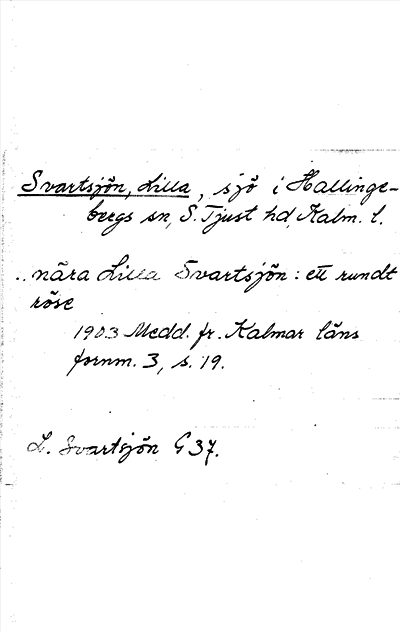 Svartsjön, Lilla, sjö i Hallinge-
bergs sn, S. Tjust hd, Kalm. l.
.. nära Lilla Svartsjön: ett rundt
röse
1903 Medd. fr. Kalmar läns
fornm. 3, s. 19.
L. Svartsjön G 37.